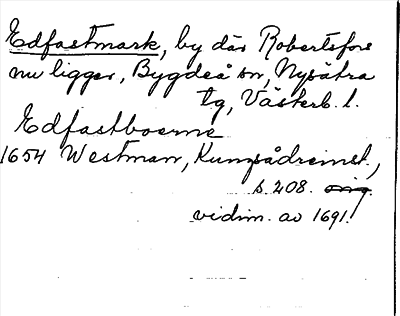 Edfastmark, by där Robertsfors
nu ligger, Bygdeå sn, Nysätra
tg, Västerb. l.
Edfastboerne
1654 Westman, Kungsådreinst.,
s. 208. orig.
vidim. av 1691.